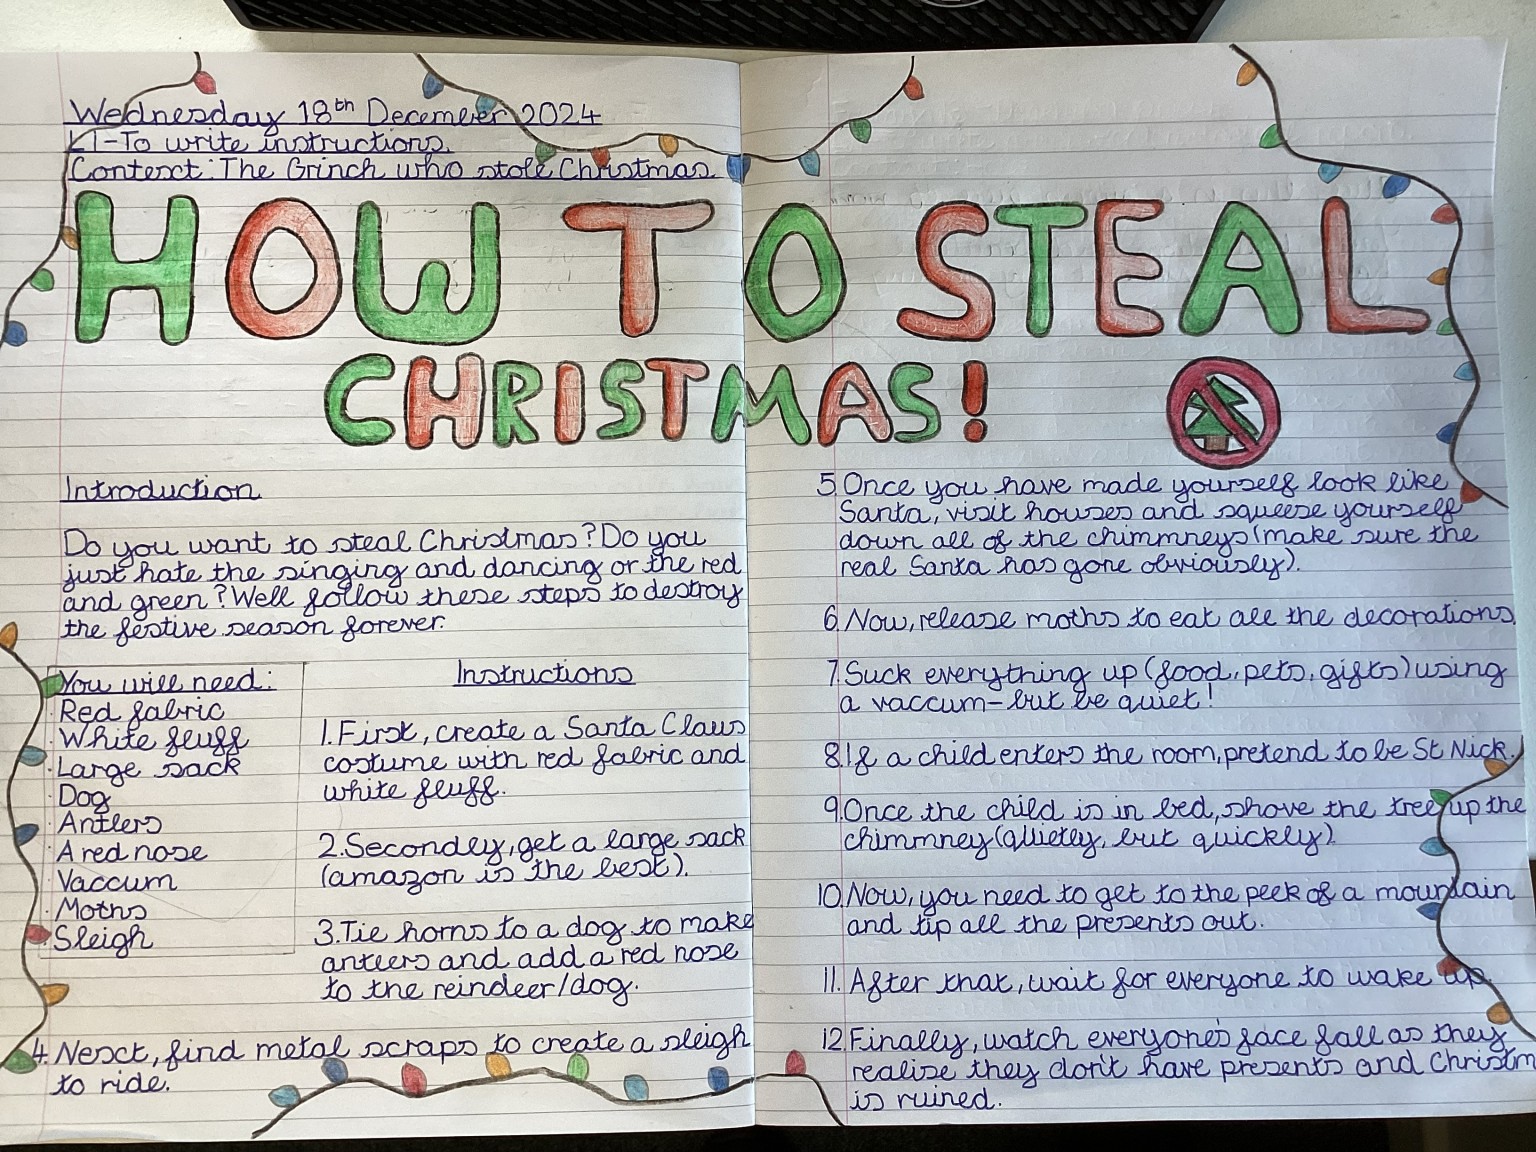 Wednesday 18th December 2024
LI-To write instructions.
Context: The Grinch who stole Christmas.
HOW TO STEAL
CHRISTMAS!
Introduction
Do you want to steal Christmas? Do you
just hate the singing and dancing or the red
and green? Well follow these steps to destroy
the festive season forever.
You will need:
· Red fabric
· White fluff
· Large sack
· Dog
· Antlers
· A red nose
· Vaccum
· Moths
· Sleigh
Instructions
1. First, create a Santa Claus
costume with red fabric and
white fluff.
2. Secondly, get a large sack
(amazon is the best).
3. Tie horns to a dog to make
antlers and add a red nose
to the reindeer/dog.
4. Next, find metal scraps to create a sleigh
to ride.
5. Once you have made yourself look like
Santa, visit houses and squeese yourself
down all of the chimmneys (make sure the
real Santa has gone obviously).
6. Now, release moths to eat all the decorations.
7. Suck everything up (food, pets, gifts) using
a vaccum-but be quiet!
8. If a child enters the room, pretend to be St Nick.
9. Once the child is in bed, shove the tree up the
chimmney (quietly, but quickly).
10. Now, you need to get to the peek of a mountain
and tip all the presents out.
11. After that, wait for everyone to wake up.
12. Finally, watch everyone's face fall as they
realise they don't have presents and Christm
is ruined.